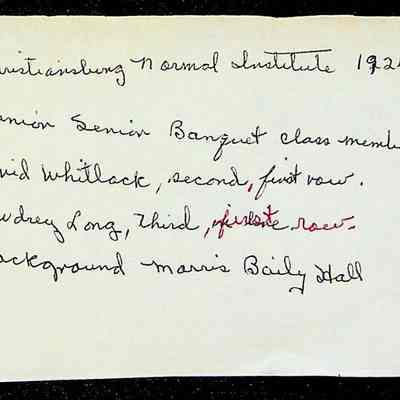 ristiansburg Normal Institute 192
unior Senior Banquet class membe
vid Whitlack, second, first row.
udrey Long, Third, first row.
ackground Morris Baily Hall